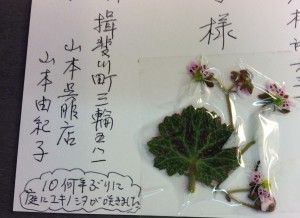 様
揖斐川町三輪
山本呉服店
山本由紀子
10何年ぶりに
庭にユキノシタが咲きました